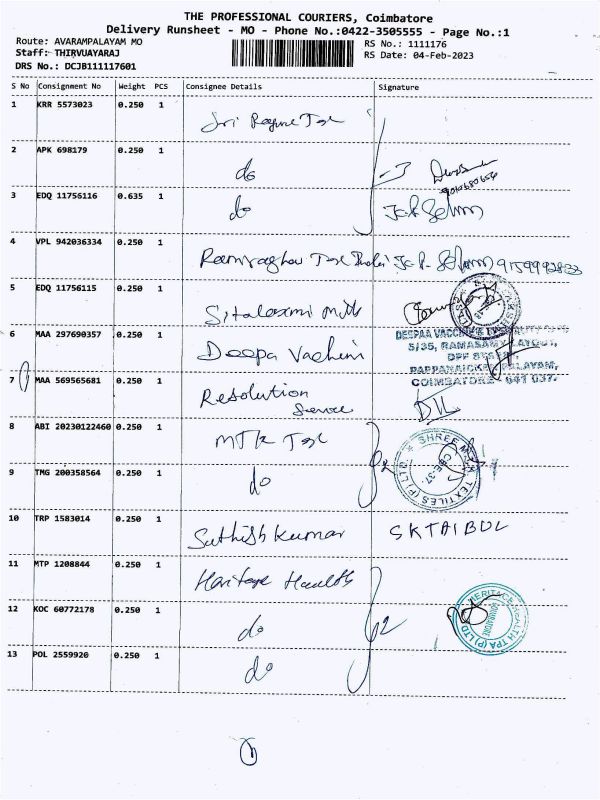 THE PROFESSIONAL COURIERS, Coimbatore
Delivery Runsheet - MO - Phone No.:0422-3505555 - Page No.:1
Route: AVARAMPALAYAM MO
Staff: THIRVUAYARAJ
DRS No.: DCJB111117601
RS No.: 1111176
RS Date: 04-Feb-2023
S No Consignment No Weight PCS Consignee Details Signature
1 KRR 5573023 0.250 1
Sri
2 APK 698179 0.250 1
do
3 EDQ 11756116 0.635 1
do
4 VPL 942036334 0.250 1
5 EDQ 11756115 0.250 1
Sitalaxmi
6 MAA 297690357 0.250 1
Deepa
DEEPAA
5/35, RAMASAMY LAYOUT,
COIMBATORE 641 037.
7 MAA 569565681 0.250 1
Resolution
8 ABI 20230122460 0.250 1
MTK Tex
SHREE TEXTILES (P) LTD
CBE-37.
9 TMG 200358564 0.250 1
do
10 TRP 1583014 0.250 1
Sathish Kumar
11 MTP 1208844 0.250 1
Heritage Health
2
HERITAGE HEALTH TPA (P) LTD
12 KOC 60772178 0.250 1
do
13 POL 2559920 0.250 1
do